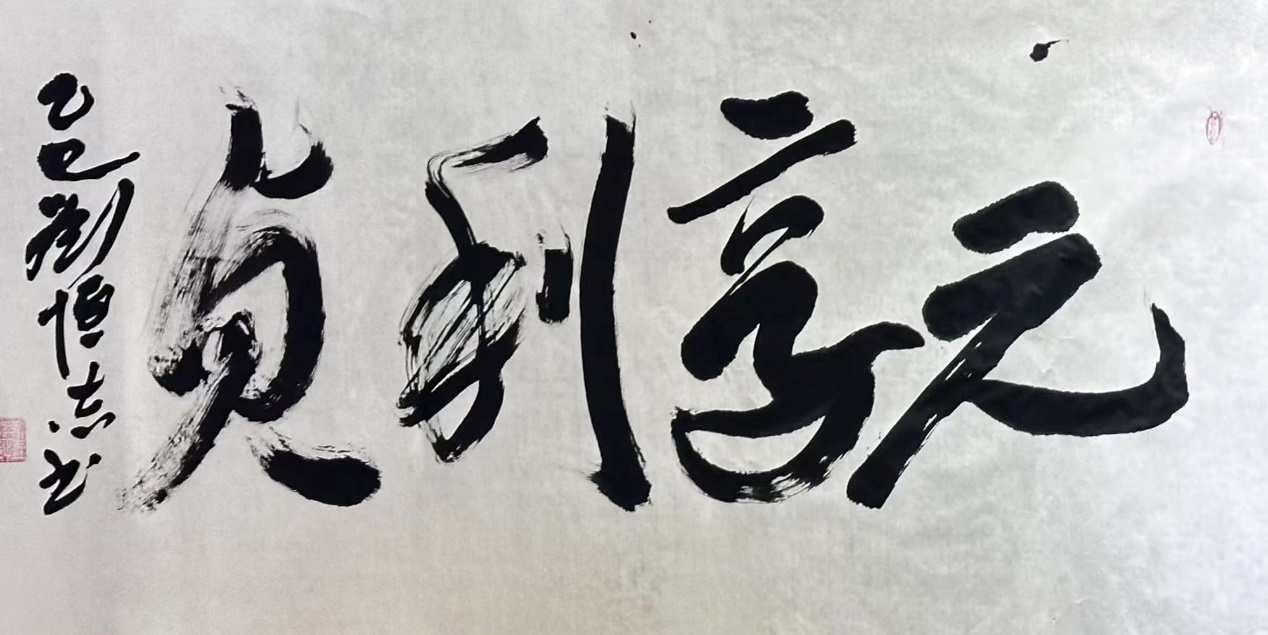 元亨利贞
乙巳刘恒志书